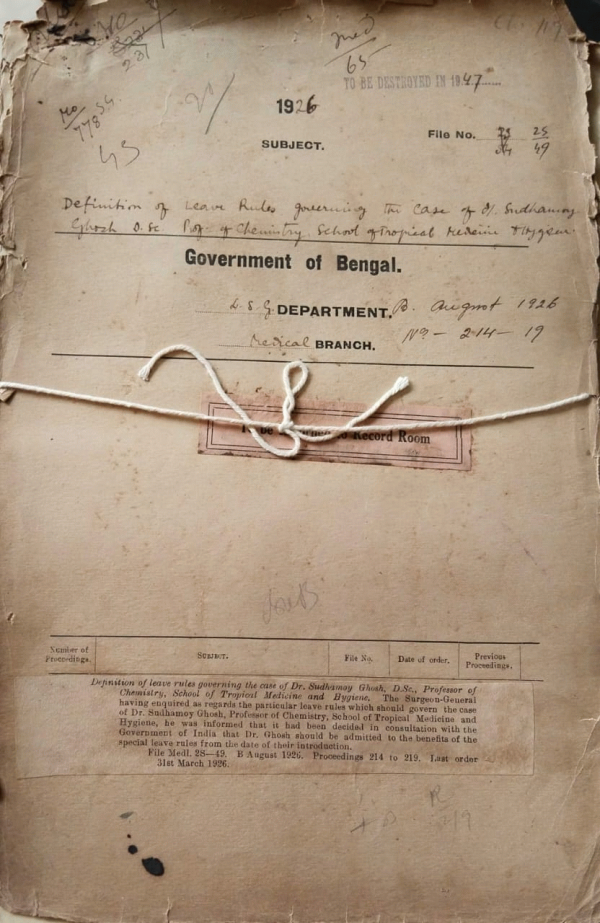 231
med
65
TO BE DESTROYED IN 1947
1926
778
SUBJECT.
File No. 23 25
49
43
Definition of Leave Rules governing the Case of Dr. Sudhamoy
Ghosh D.Sc. Prof. of Chemistry School of Tropical Medicine & Hygiene.
Government of Bengal.
L. S. G. DEPARTMENT. B. August 1926
Medical BRANCH. No - 214 - 19
To be Record Room
Number of Proceedings. SUBJECT. File No. Date of order. Previous Proceedings.
Definition of leave rules governing the case of Dr. Sudhamoy Ghosh, D.Sc., Professor of
Chemistry, School of Tropical Medicine and Hygiene. The Surgeon-General
having enquired as regards the particular leave rules which should govern the case
of Dr. Sudhamoy Ghosh, Professor of Chemistry, School of Tropical Medicine and
Hygiene, he was informed that it had been decided in consultation with the
Government of India that Dr. Ghosh should be admitted to the benefits of the
special leave rules from the date of their introduction.
File Medl. 28—49. B August 1926. Proceedings 214 to 219. Last order
31st March 1926.